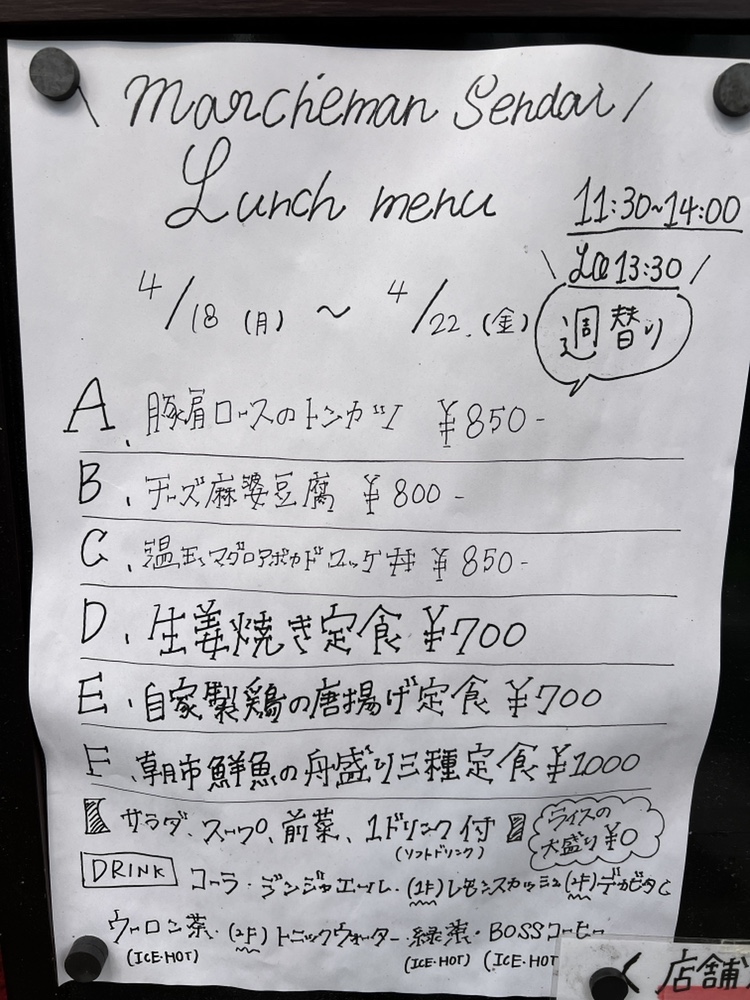 \ Marcheman Sendai /
Lunch menu
11:30~14:00
\ LO 13:30 /
4/18 (月) ~ 4/22. (金)
週替り
A. 豚肩ロースのトンカツ ¥850-
B. チーズ麻婆豆腐 ¥800-
C. 温玉マグロアボカドユッケ丼 ¥850-
D. 生姜焼き定食 ¥700
E. 自家製鶏の唐揚げ定食 ¥700
F. 朝市鮮魚の舟盛り三種定食 ¥1000
サラダ、スープ、前菜、1ドリンク付
(ソフトドリンク)
ライスの
大盛り¥0
DRINK コーラ・ジンジャエール・(2F)レモンスカッシュ(2F)デカビタC
ウーロン茶・(2F)トニックウォーター・緑茶・BOSSコーヒー
(ICE・HOT) (ICE・HOT) (ICE・HOT
店舗